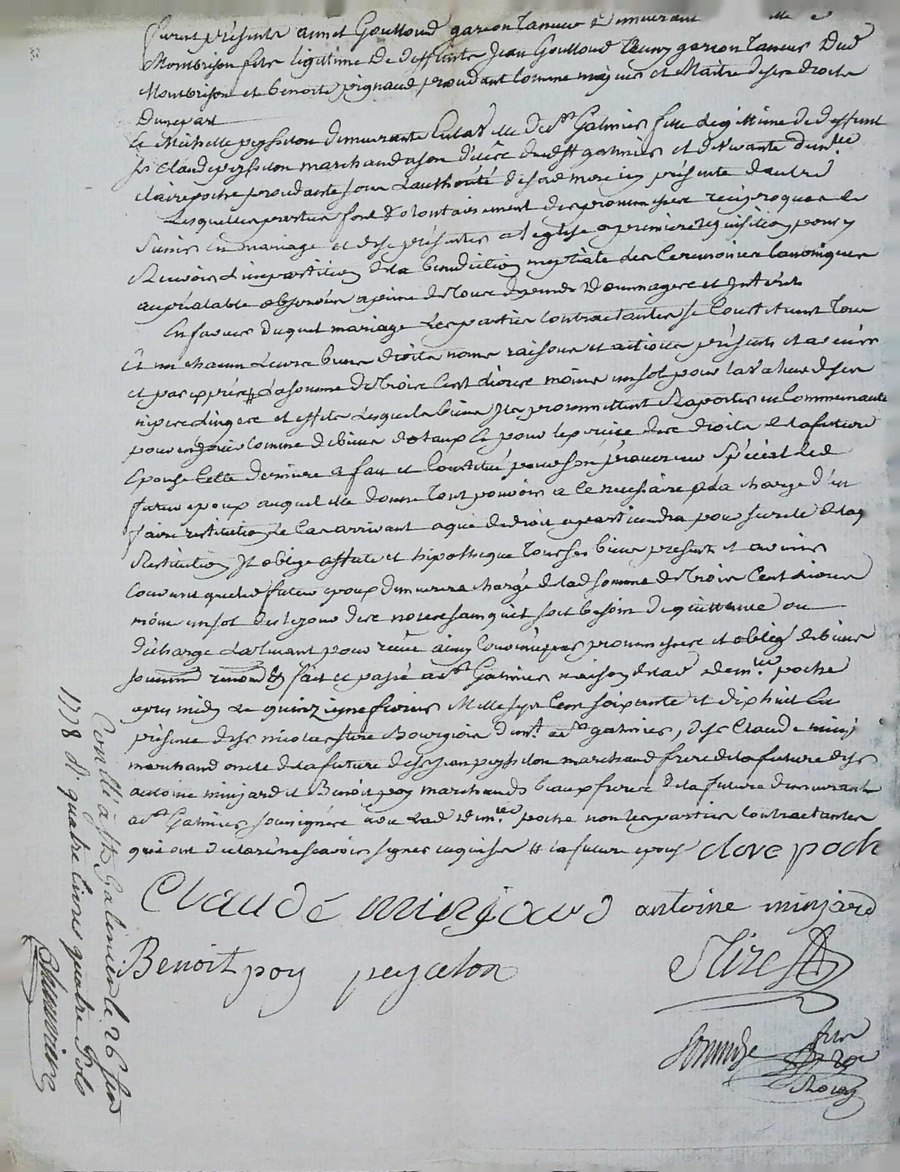 Furent présents annet Goutloud garcon Taneur demeurant
Montbrison fils légitime de deffunts Jean Goutloud vivant garcon Taneur dud
Montbrison et benoite pignaud procedant comme majeur et Maitre de ses droits
Dunepart
Et Michelle peyssелon demeurante en lad ville de St Galmier fille Legitime de deffunt
Sr Claude peysselon marchand a son décès dud St galmier et de vivante dem.lle
claire poche procedante sous l'authorité de sad mere icy présente d'autre
Lesquelles parties font volontairement des promesses reciproques de
S'unir en mariage et de se présenter a l'église a premiere requisition pour y
Recevoir l'impartition de la benediction nuptiale les Ceremonies Canoniques
au préalable observées a peine de tous depends Dommages et Interets
En faveur duquel mariage Les parties contractantes se Constituent Tous
Et un chacun Leurs biens droits noms raisons et actions présents et avenirs
et par exprès la somme de Trois Cent livres moins un sol pour la valeur de ses
linge et effets Lesquels biens Ils promettent Raporter en Communauté
pour en jouir comme de biens dotaux Et pour l'exercice des droits de la future
Epouse Cette derniere a fait et Constitué pour son procureur Spécial led
futur epoux auquel elle donne tout pouvoir a ce necessaire a la charge d'en
faire restitution le Cas arrivant a qui de droit apartiendra pour sureté de lad
Restitution Il oblige affecte et hipotheque Tous ses biens presents et avenirs
Convenu que led futur epoux demeurera chargé de lad somme de Trois Cent livres
moins un sol des le jour de ses noces sans qu'il soit besoin de quittance ou
décharge
fait et passé a St Galmier maison de lad dem.lle poche
apres midy Le quinzieme fevrier Mille sept Cent soixante et dix huit En
présence de Sr nicolas Bourgeois dem.t a St galmier, de Sr Claude minjard
marchand oncle de la future de Sr Jean peysselon marchand frere de la future de Srs
antoine minjard et Benoit poy marchands beaux freres de la future demeurants
a St Galmier soussignés avec Lad dem.lle poche non les parties contractantes
qui ont declaré ne scavoir signer enquises # la future epouse
clere poch
Claude minjard antoine minjard
Benoit poy peyselon
Controllé a St Galmier le 26 fevr
1778 Rt quatre livres quatre sols